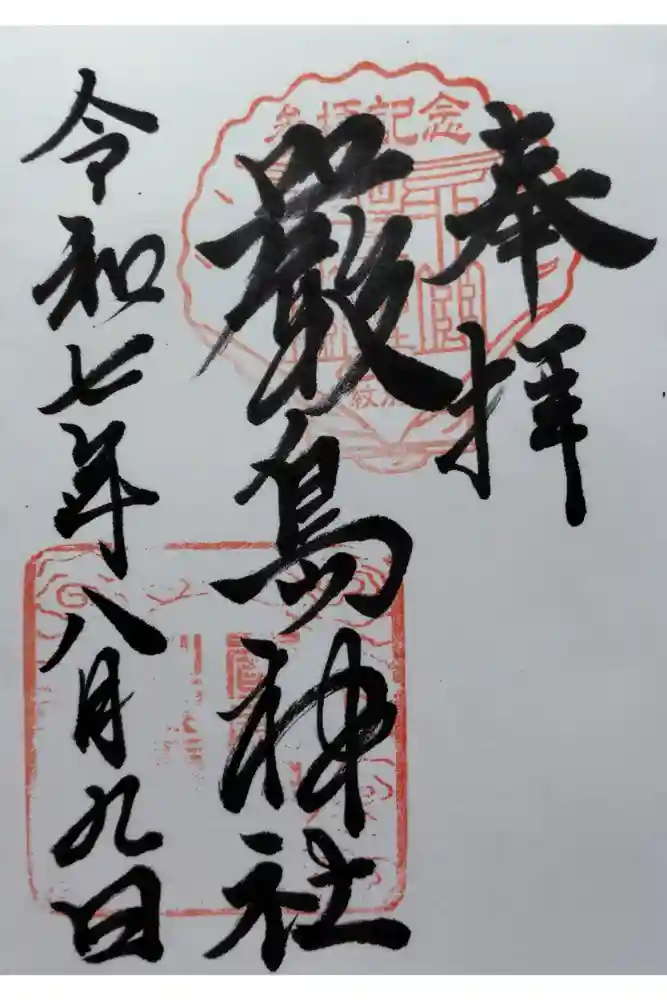 奉拝
厳島神社
令和七年八月九日
参拝記念